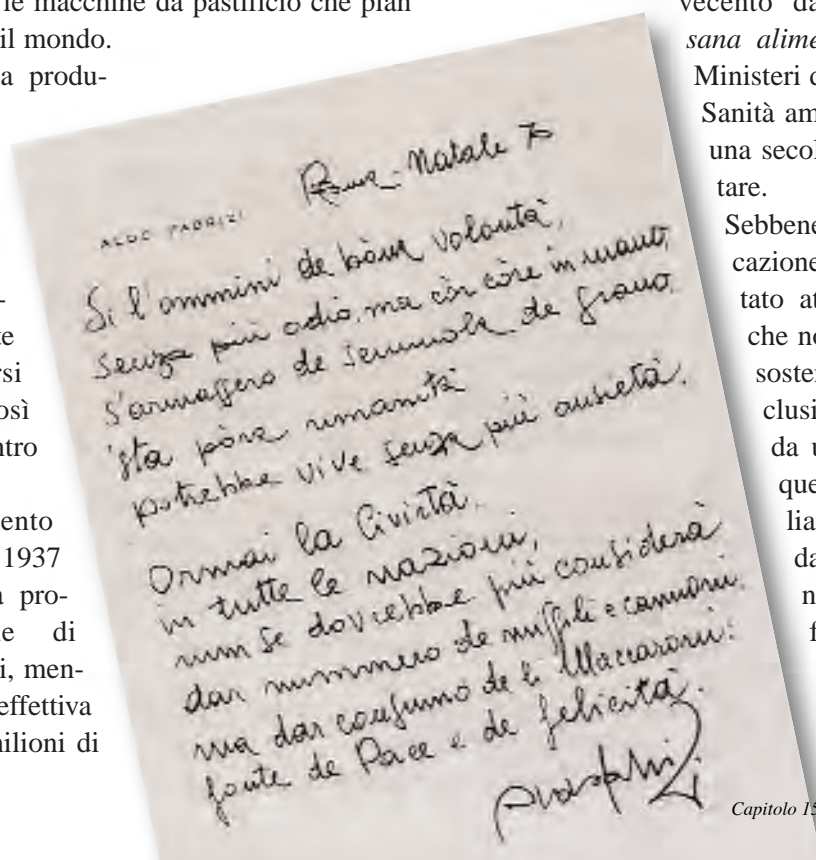 le macchine da pastificio che pian
il mondo.
a produ-
-
te
rsi
osì
ntro
ento
1937
a pro-
e di
i, men-
effettiva
nilioni di
Roma - Natale 70
ALDO FABRIZI
Si l'ommini de bòna volontà,
senza più odio, ma cór còre in mano,
s'armassero de semmola de grano,
'sta pòra umanità
potrebbe vive senza più ansietà.
Ormai la Civirtà,
in tutte le nazioni,
num se dovrebbe più considerà
dar nummero de missili e cannoni:
ma dar consumo de li Maccaroni:
fonte de Pace e de felicità.
vecento da
sana alime
Ministeri d
Sanità am
una secol
tare.
Sebbene
cazione
tato at
che no
soster
clusi
da u
que
lia
da
n
f
Capitolo 15